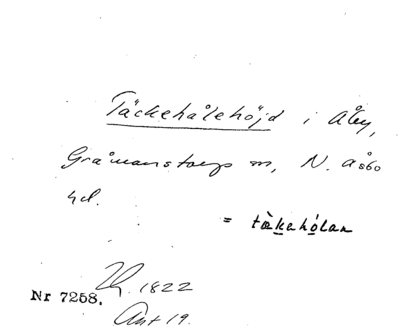 Täckehålehöjd i Åby,
Gråmanstorps sn, N. Åsbo
hd.
= tàkehólan
Nr 7258.
1822
Ant 19.